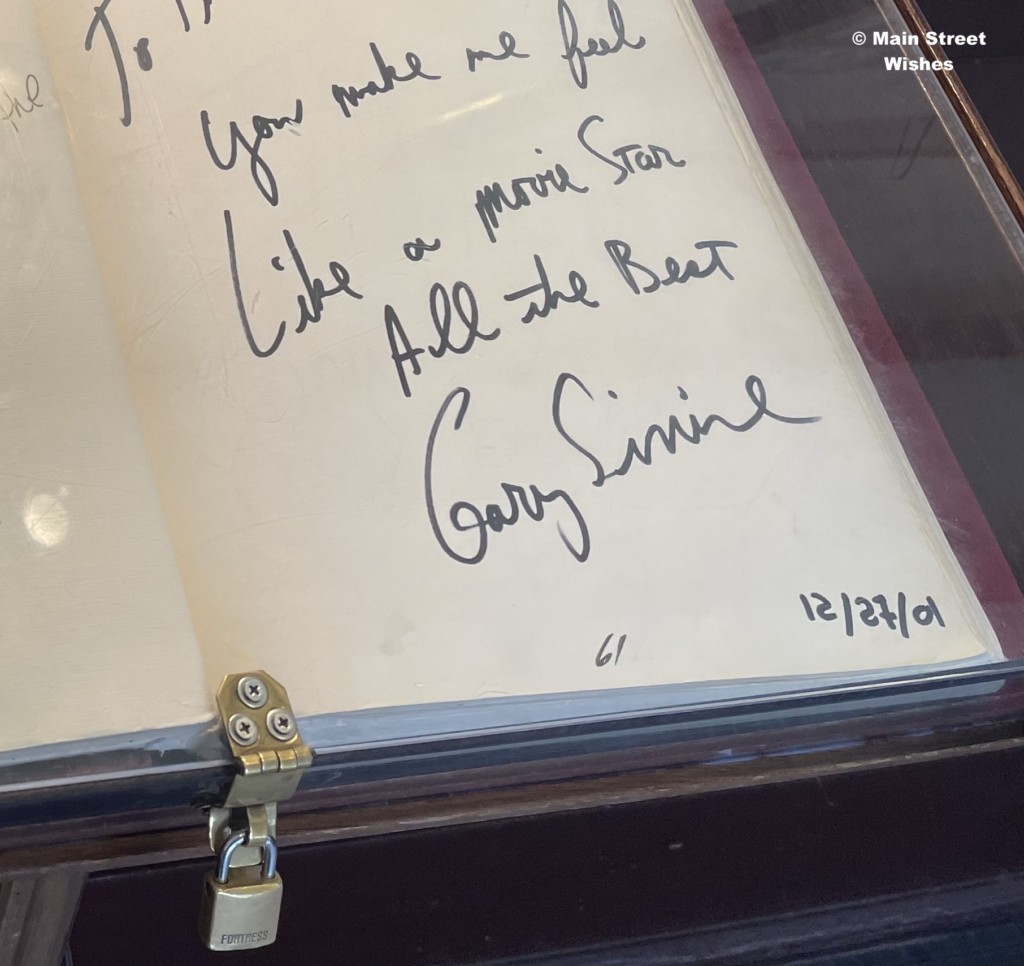 © Main Street
Wishes
To
you make me feel
Like a movie Star
All the Best
Gary Sinise
12/27/01
61
FORTRESS